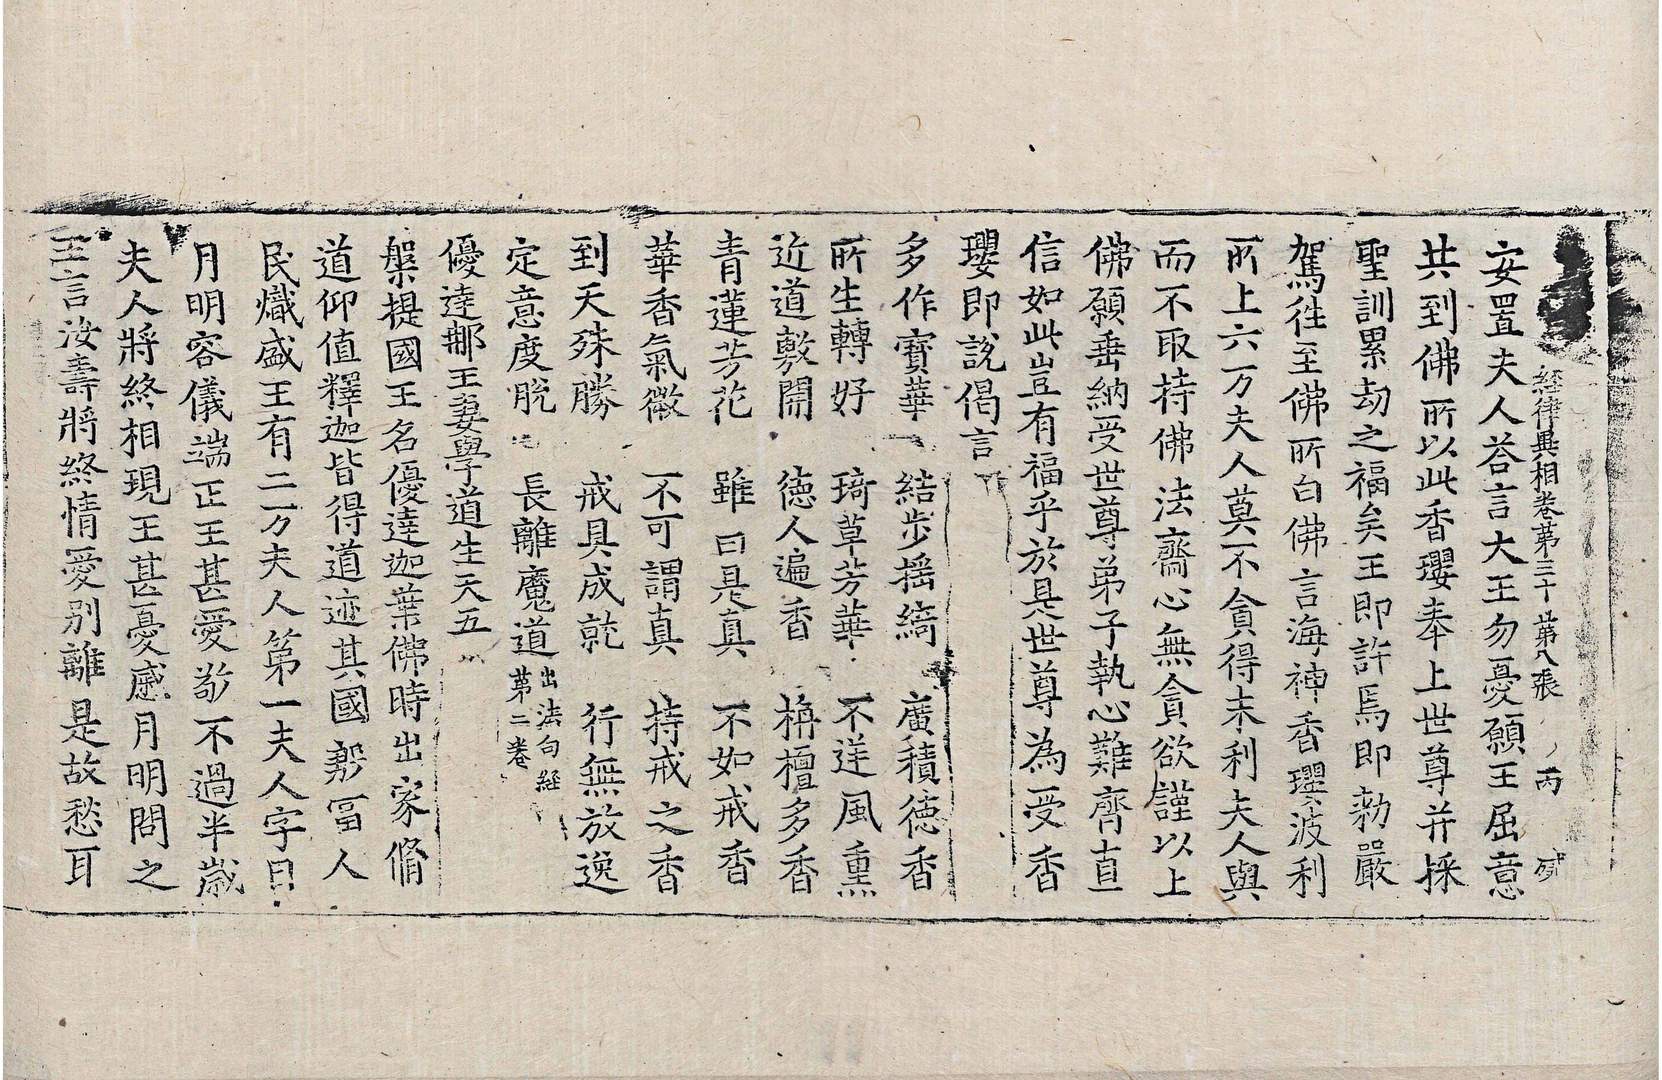 経律異相卷第三十 第八張 丙
安置夫人荅言大王勿憂願王屈意
共到佛所以此香瓔奉上世尊并採
聖訓累劫之福矣王即許焉即勑嚴
駕往至佛所白佛言海神香瓔波利
所上六万夫人莫不貪得末利夫人與
而不取持佛法齋心無貪欲謹以上
佛願垂納受世尊弟子執心難齊直
信如此豈有福乎於是世尊為受香
瓔即說偈言
多作寶華 結步揺綺 廣積德香
所生轉好 琦草芳華 不逆風熏
近道敷開 德人遍香 栴檀多香
青蓮芳花 雖曰是真 不如戒香
華香氣微 不可謂真 持戒之香
到天殊勝 戒具成就 行無放逸
定意度脫 長離魔道 出法句經第二卷
優達那王妻學道生天五
槃提國王名優達迦葉佛時出家脩
道仰值釋迦皆得道迹其國勢冨人
民熾盛王有二万夫人第一夫人字曰
月明容儀端正王甚愛敬不過半歲
夫人將終相現王甚憂慼月明問之
王言汝壽將終情愛別離是故愁耳